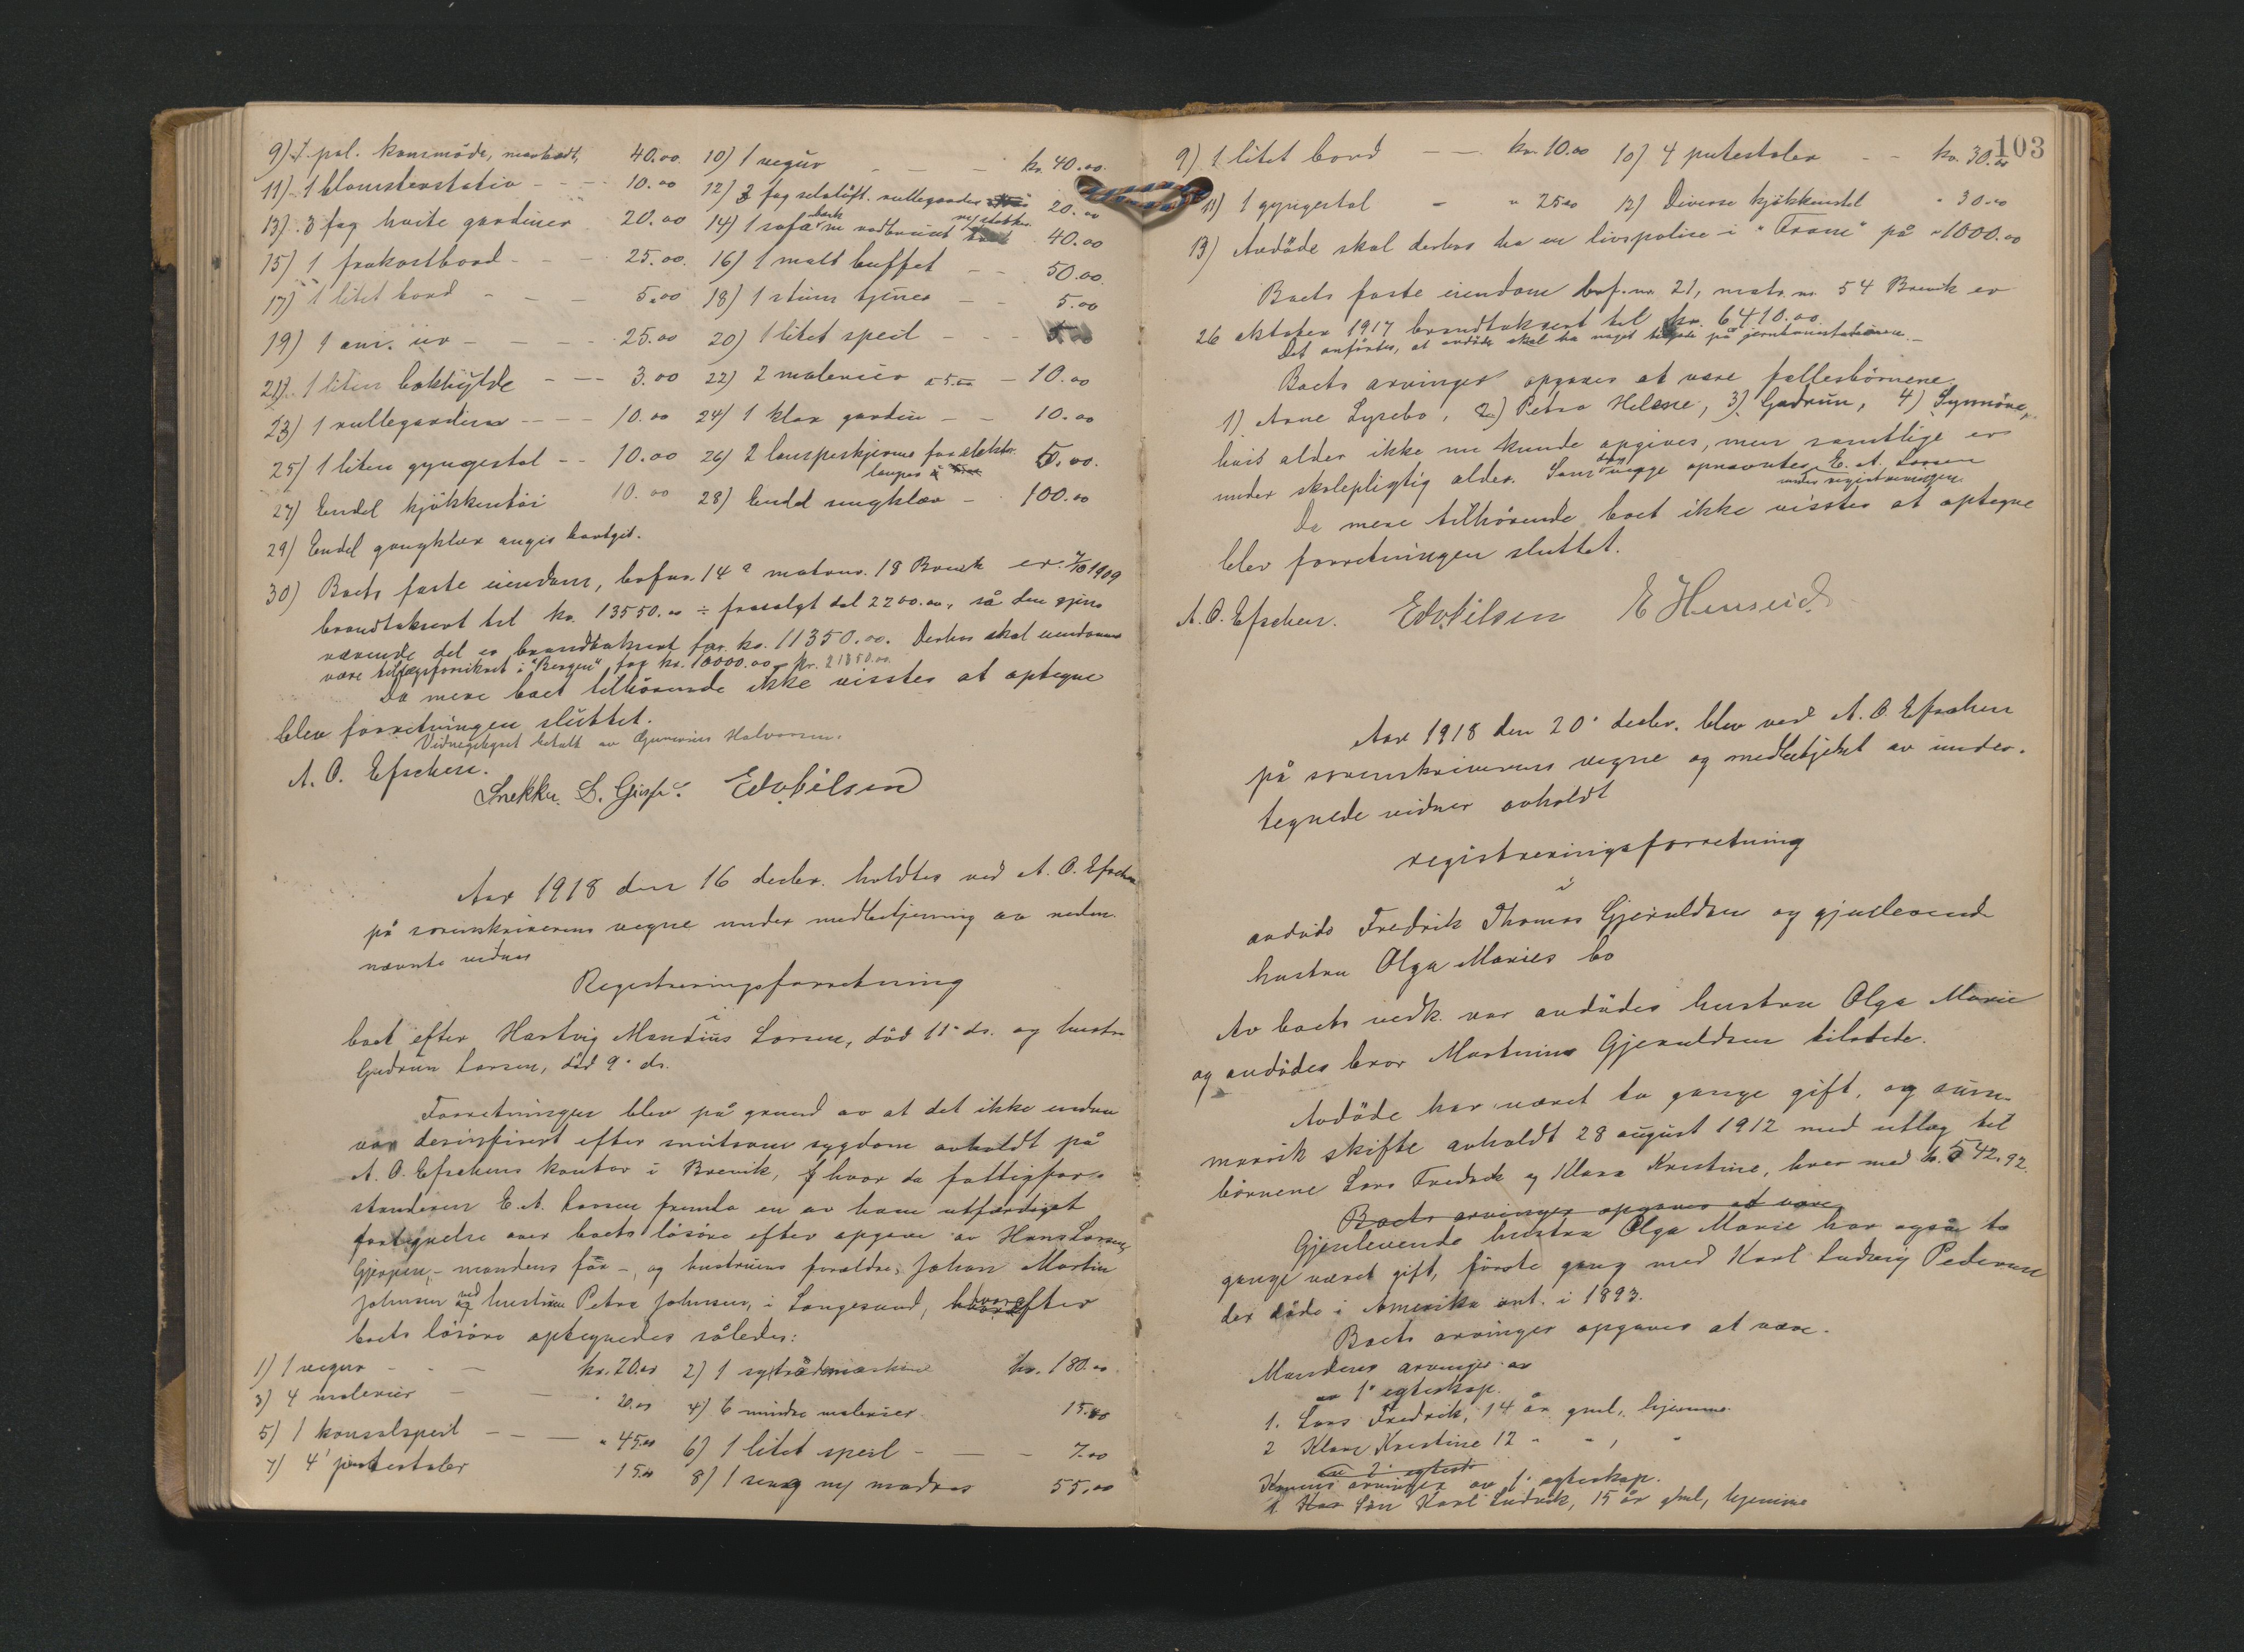 9) 1 pol. kommode, 40.00 10) 1 vegur kr. 40.00
11) 1 blomsterstativ 10.00 12) 3 fag rullegardin 20.00
13) 3 fag hvite gardiner 20.00 14) 1 sofa m rødbrunt 40.00
15) 1 frokostbord 25.00 16) 1 malt buffet 50.00
17) 1 litet bord 5.00 18) 1 stum tjener 5.00
19) 1 am. ur 25.00 20) 1 litet speil
21) 1 liten bokhylde 3.00 22) 2 malerier a 5.00 10.00
23) 1 rullegardin 10.00 24) 1 klar gardin 10.00
25) 1 liten gyngestol 10.00 26) 2 lampeskjerme for elektr.
lamper 5.00.
27) Endel kjøkkentøi 10.00 28) Endel 100.00
29) Endel gangklær angis bortgit.
30) Boets faste eiendom, bofnr. 14 a matrnr. 18 Brevik er 1909
brandtaksert til kr. 13550.00 ÷ frasolgt del 2200.00, så den gjen-
værende del er brandtaksert for kr. 11350.00. Derhos skal eiendommen
være tillægsforsikret i "Bergen" for kr. 10000.00 kr. 21350.00
Da mere boet tilhørende ikke visstes at optegne
blev forretningen sluttet.
Vidnegebyret betalt av Halvorsen.
A. O. Efschen. Snekker Edv. Nilsen
Aar 1918 den 16 decbr. holdtes ved A. O. Efschen
på sorenskriverens vegne under medbetjening av neden-
nævnte vidner
Registreringsforretning
i
boet efter Hartvig Mandius Larsen, død 11. ds. og hustru
Gudrun Larsen, død 9. ds.
Forretningen blev på grund av at det ikke endnu
var desinfisert efter smitsom sygdom avholdt på
A. O. Efschens kontor i Brevik, hvor da fattigfor-
standeren E. A. Larsen fremla en av ham utfærdiget
fortegnelse over boets løsøre efter opgave av Hans Larsen,
Gjerpen, - mandens far -, og hustruens forældre, Johan Martin
Johnsen ved hustru Petra Johnsen, i Langesund, hvorefter
boets løsøre optegnedes således:
1) 1 vegur kr. 20.00 2) 1 symaskine kr. 180.00
3) 4 malerier " 20.00 4) 6 mindre malerier 15.00
5) 1 konsolspeil " 45.00 6) 1 litet speil 7.00
7) 4 putestoler 15.00 8) 1 seng ny madras 55.00
103
9) 1 litet bord kr. 10.00 10) 4 putestoler kr. 30.00
11) 1 gyngestol " 25.00 12) Diverse kjøkkenstel " 30.00
13) Avdøde skal derhos ha en livspolise i "Fram" på " 1000.00
Boets faste eiendom bof. nr. 21, matr. nr. 54 Brevik er
26 oktober 1917 brandtaksert til kr. 6410.00.
Det anførtes, at avdøde skal ha noget tilgode på jernbanestationen.
Boets arvinger opgaves at være fællesbørnene
1) Arne Lysebo, 2) Petra Helene, 3) Gudrun, 4) Synnøve,
hvis alder ikke nu kunde opgives, men samtlige er
under skolepligtig alder. Som verge opnævntes E. A. Larsen
under registreringen.
Da mere tilhørende boet ikke visstes at optegne
blev forretningen sluttet.
A. O. Efschen. Edv. Nilsen
Aar 1918 den 20. decbr. blev ved A. O. Efschen
på sorenskriverens vegne og medbetjent av under-
tegnede vidner avholdt
registreringsforretning
i
avdøde Fredrik Thomas Gjeruldsen og gjenlevende
hustru Olga Maries bo
Av boets vedk. var avdødes hustru Olga Marie
og avdødes bror Martinius Gjeruldsen tilstede.
Avdøde har været to gange gift, og
skifte avholdt 28 august 1912 med utlæg til
børnene Lars Fredrik og Klara Kristine, hver med kr. 542.92.
Boets arvinger opgaves at være
Gjenlevende hustru Olga Marie har også to
gange været gift, første gang med Karl Ludvig Pedersen
der døde i Amerika ant. i 1893.
Boets arvinger opgaves at være.
Mandens arvinger av
1. egteskap.
1. Lars Fredrik, 14 år gml., hjemme
2 Klara Kristine 12 " " , "
Konens arvinger av 1. egteskap.
1 Søn Karl Ludvik, 15 år gml, hjemme